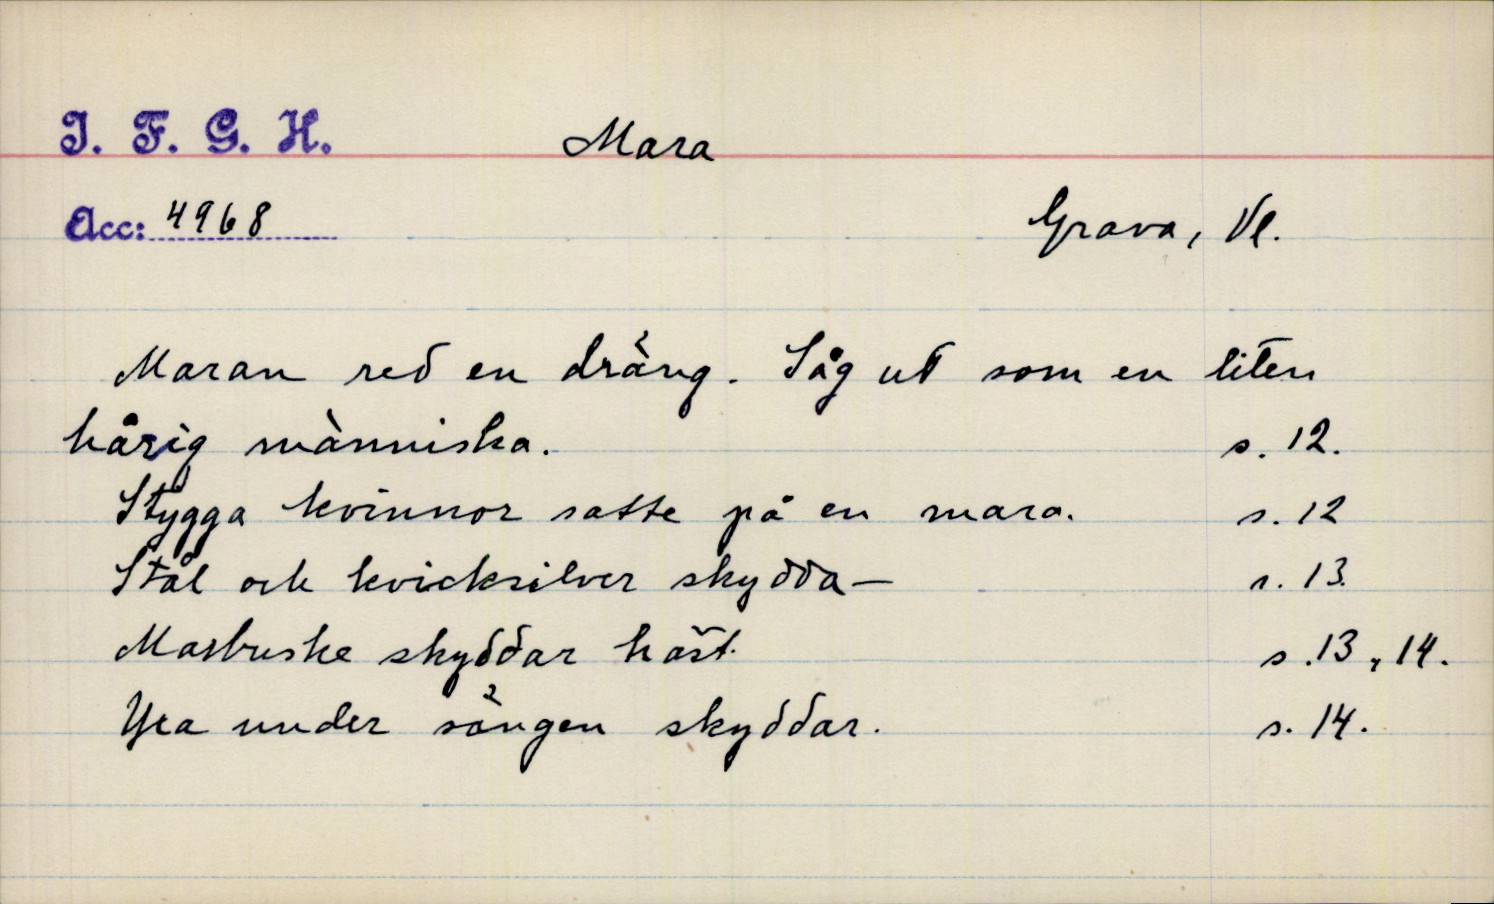 I. F. G. H.
Mara
Acc: 4968
Grava, Vl.
Maran red en dräng. Såg ut som en liten
hårig människa. s. 12.
Stygga kvinnor satte på en mara. s. 12
Stål och kvicksilver skydda— s. 13.
Marbuske skyddar häst. s. 13, 14.
Yxa under sängen skyddar. s. 14.